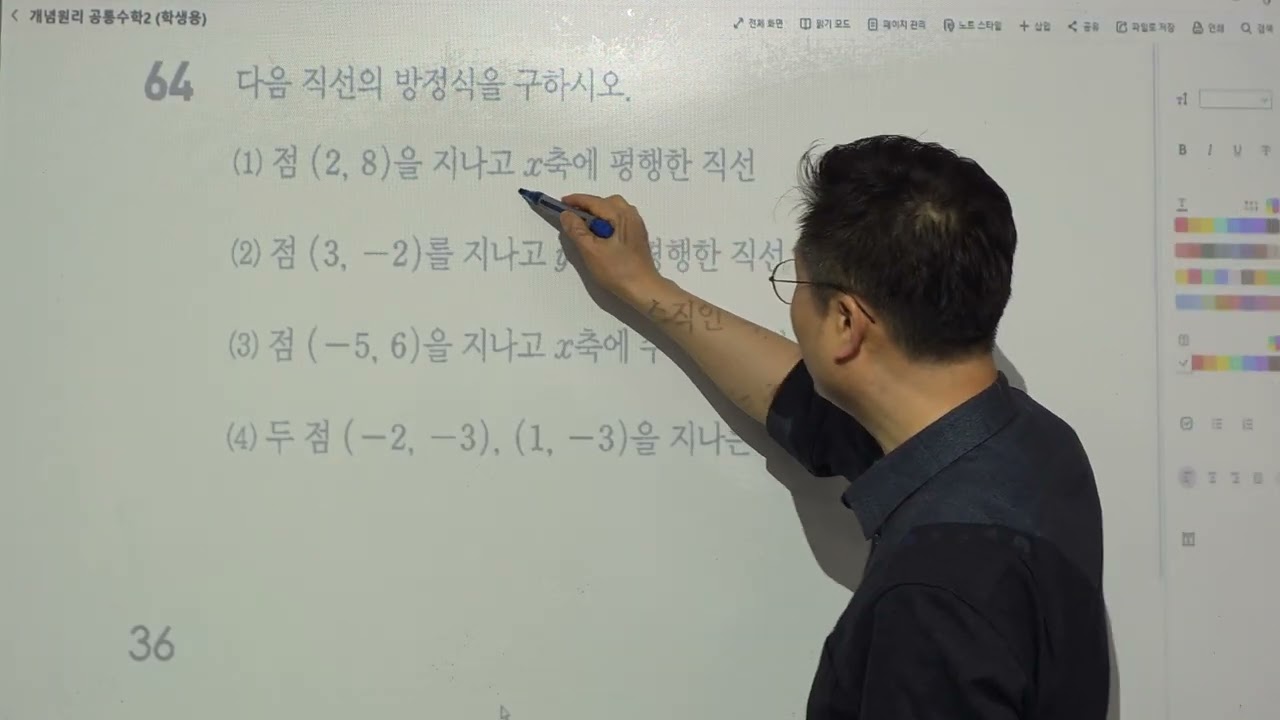 개념원리 공통수학2 (학생용)
전체 화면 읽기 모드 페이지 관리 노트 스타일 삽입 공유 파일로 저장 인쇄 검색
64 다음 직선의 방정식을 구하시오.
(1) 점 (2, 8)을 지나고 x축에 평행한 직선
(2) 점 (3, −2)를 지나고 평행한 직선
(3) 점 (−5, 6)을 지나고 x축에 수직인
(4) 두 점 (−2, −3), (1, −3)을 지나는
36
B I U T